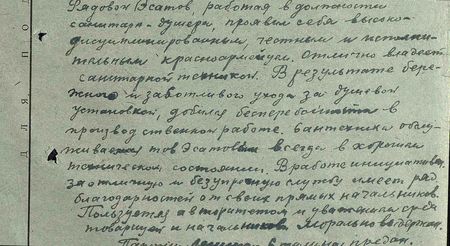 Рядовой Эсатов, работая в должности
санитара-душера, проявил себя высоко-
дисциплинированным, честным и исполни-
тельным красноармейцем. Отлично владеет
санитарной техникой. В результате бере-
жного и заботливого ухода за душевой
установкой, добился бесперебойности в
производственной работе. Сантехника обслу-
живаемая тов Эсатовым всегда в хорошем
техническом состоянии. В работе инициативен,
за отличную и безупречную службу имеет ряд
благодарностей от своих прямых начальников.
Пользуется авторитетом и уважением среди
товарищей и начальников. Морально выдержан.
Партии предан.
ДЛЯ ПОД